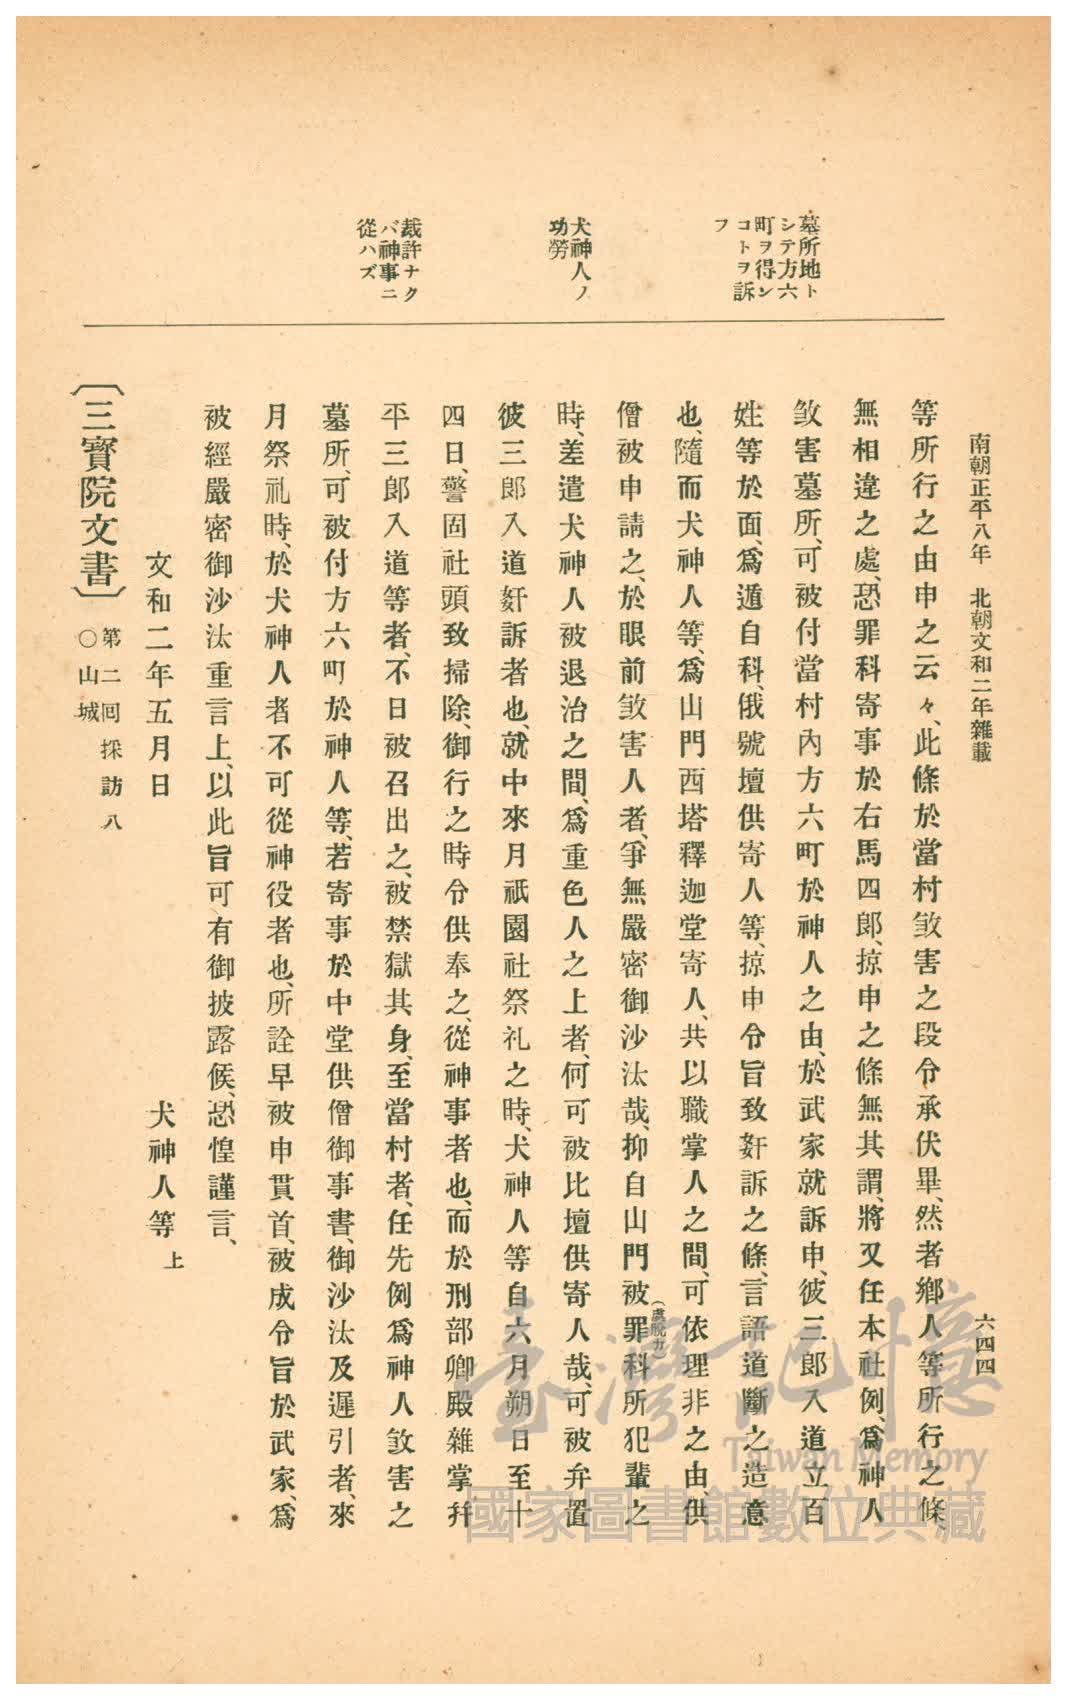 南朝正平八年　北朝文和二年雜載
六四四
墓所地ト
シテ方六
町ヲ得ン
コトヲ訴
フ
犬神人ノ
功勞
裁許ナク
バ神事ニ
從ハズ
等所行之由申之云々、此條於當村敓害之段令承伏畢、然者鄕人等所行之條、
無相違之處、恐罪科寄事於右馬四郎、掠申之條無其謂、將又任本社例、爲神人
敓害墓所、可被付當村內方六町於神人之由、於武家就訴申、彼三郎入道立百
姓等於面、爲遁自科、俄號壇供寄人等、掠申令旨致姧訴之條、言語道斷之造意
也、隨而犬神人等、爲山門西塔釋迦堂寄人、共以職掌人之間、可依理非之由、供
僧被申請之、於眼前敓害人者、爭無嚴密御沙汰哉、抑自山門被罪科所犯輩之
（虞脫カ）
時、差遣犬神人被退治之間、爲重色人之上者、何可被比壇供寄人哉、可被弃置
彼三郎入道姧訴者也、就中來月祇園社祭礼之時、犬神人等自六月朔日至十
四日、警固社頭致掃除、御行之時令供奉之、從神事者也、而於刑部卿殿雜掌幷
平三郎入道等者、不日被召出之、被禁獄其身、至當村者、任先例爲神人敓害之
墓所、可被付方六町於神人等、若寄事於中堂供僧御事書、御沙汰及遲引者、來
月祭礼時、於犬神人者不可從神役者也、所詮早被申貫首、被成令旨於武家、爲
被經嚴密御沙汰重言上、以此旨可有御披露候、恐惶謹言、
文和二年五月日　犬神人等上
〔三寶院文書〕第二回採訪八
○山城
臺灣記憶
Taiwan Memory
國家圖書館數位典藏